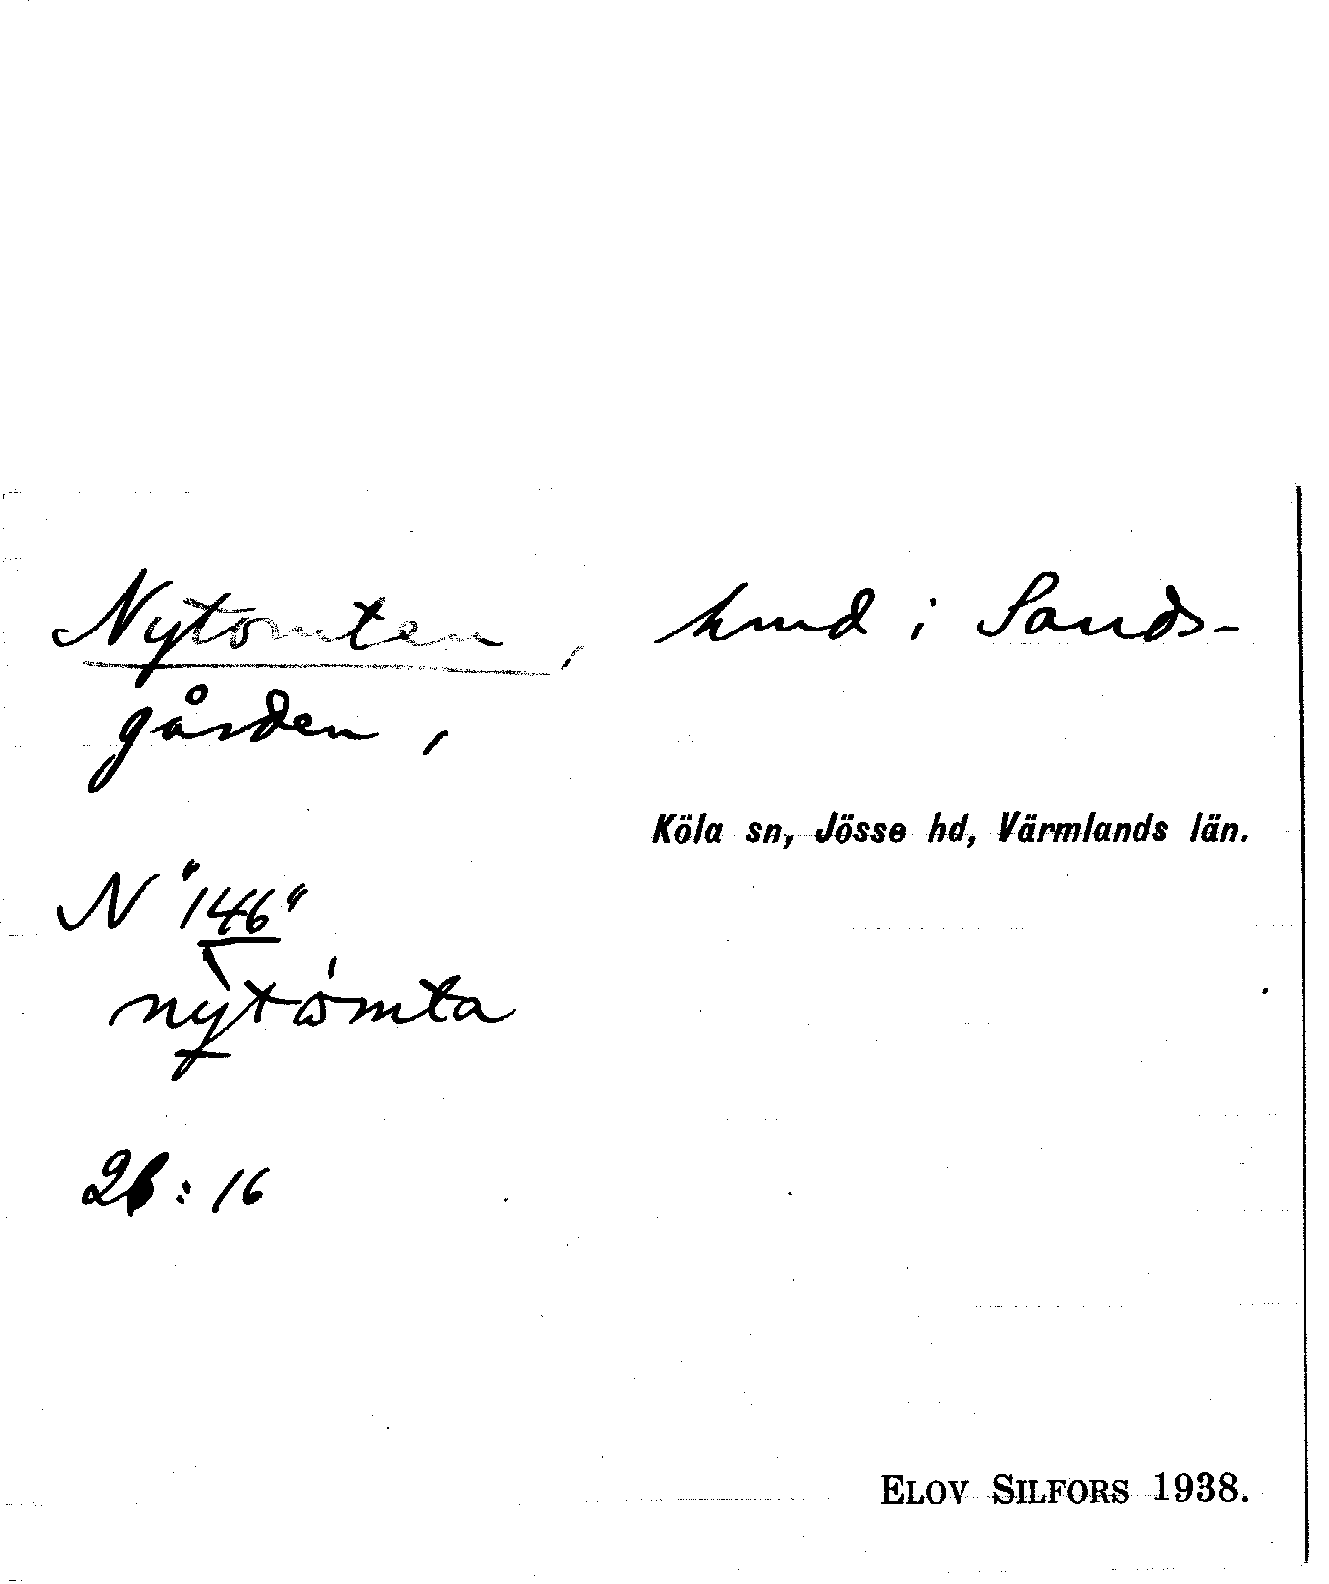 Nytomten, hmd i Sands-
gården,
Köla sn, Jösse hd, Värmlands län.
N "146"
nytømta
26:16
ELOV SILFORS 1938.